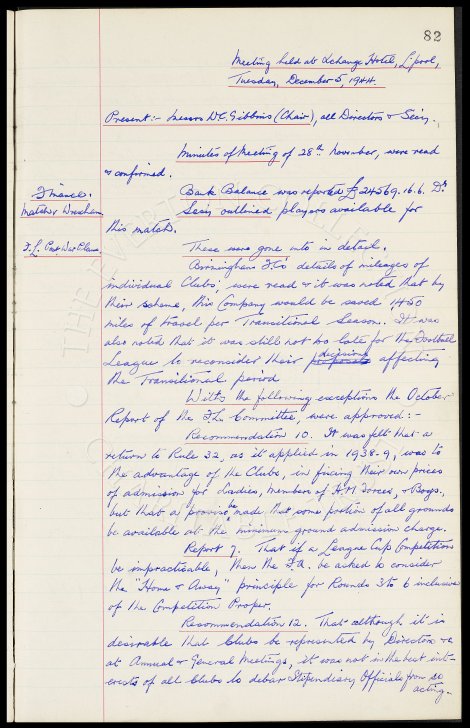 82
Meeting held at Exchange Hotel, L'pool,
Tuesday, December 5, 1944.
Present:- Messrs W.C. Gibbins (Chair), all Directors & Secy.
Minutes of Meeting of 28th November, were read
& confirmed.
Finance.
Bank Balance was reported £24569.16.6. Dr
Matches Wrexham
Secy outlined players available for
this match.
F.L. Post War Plans.
These were gone into in detail.
Birmingham F.C's details of mileages of
individual Clubs, were read & it was noted that by
their scheme, this Company would be saved 1450
miles of travel per Transitional Season. It was
also noted that it was still not too late for the Football
League to reconsider their proposals decisions affecting
the Transitional period
With the following exceptions the October
Report of the F.L. Committee, were approved:-
Recommendation 10. It was felt that a
return to Rule 22, as it applied in 1938-9, was to
the advantage of the Clubs, in fixing their own prices
of admission for Ladies, Members of H.M Forces, & Boys,
but that a proviso be made that some portion of all grounds
be available at the minimum ground admission charge.
Report 7. That if a League Cup Competition
be impracticable, then the F.A. be asked to consider
the "Home & Away" principle for Rounds 3 to 6 inclusive
of the Competition Proper.
Recommendation 12. That although it is
desirable that Clubs be represented by Directors
at Annual & General Meetings, it was not in the best int-
erests of all Clubs to debar Stipendiary Officials from so
acting.
THE EVERTON